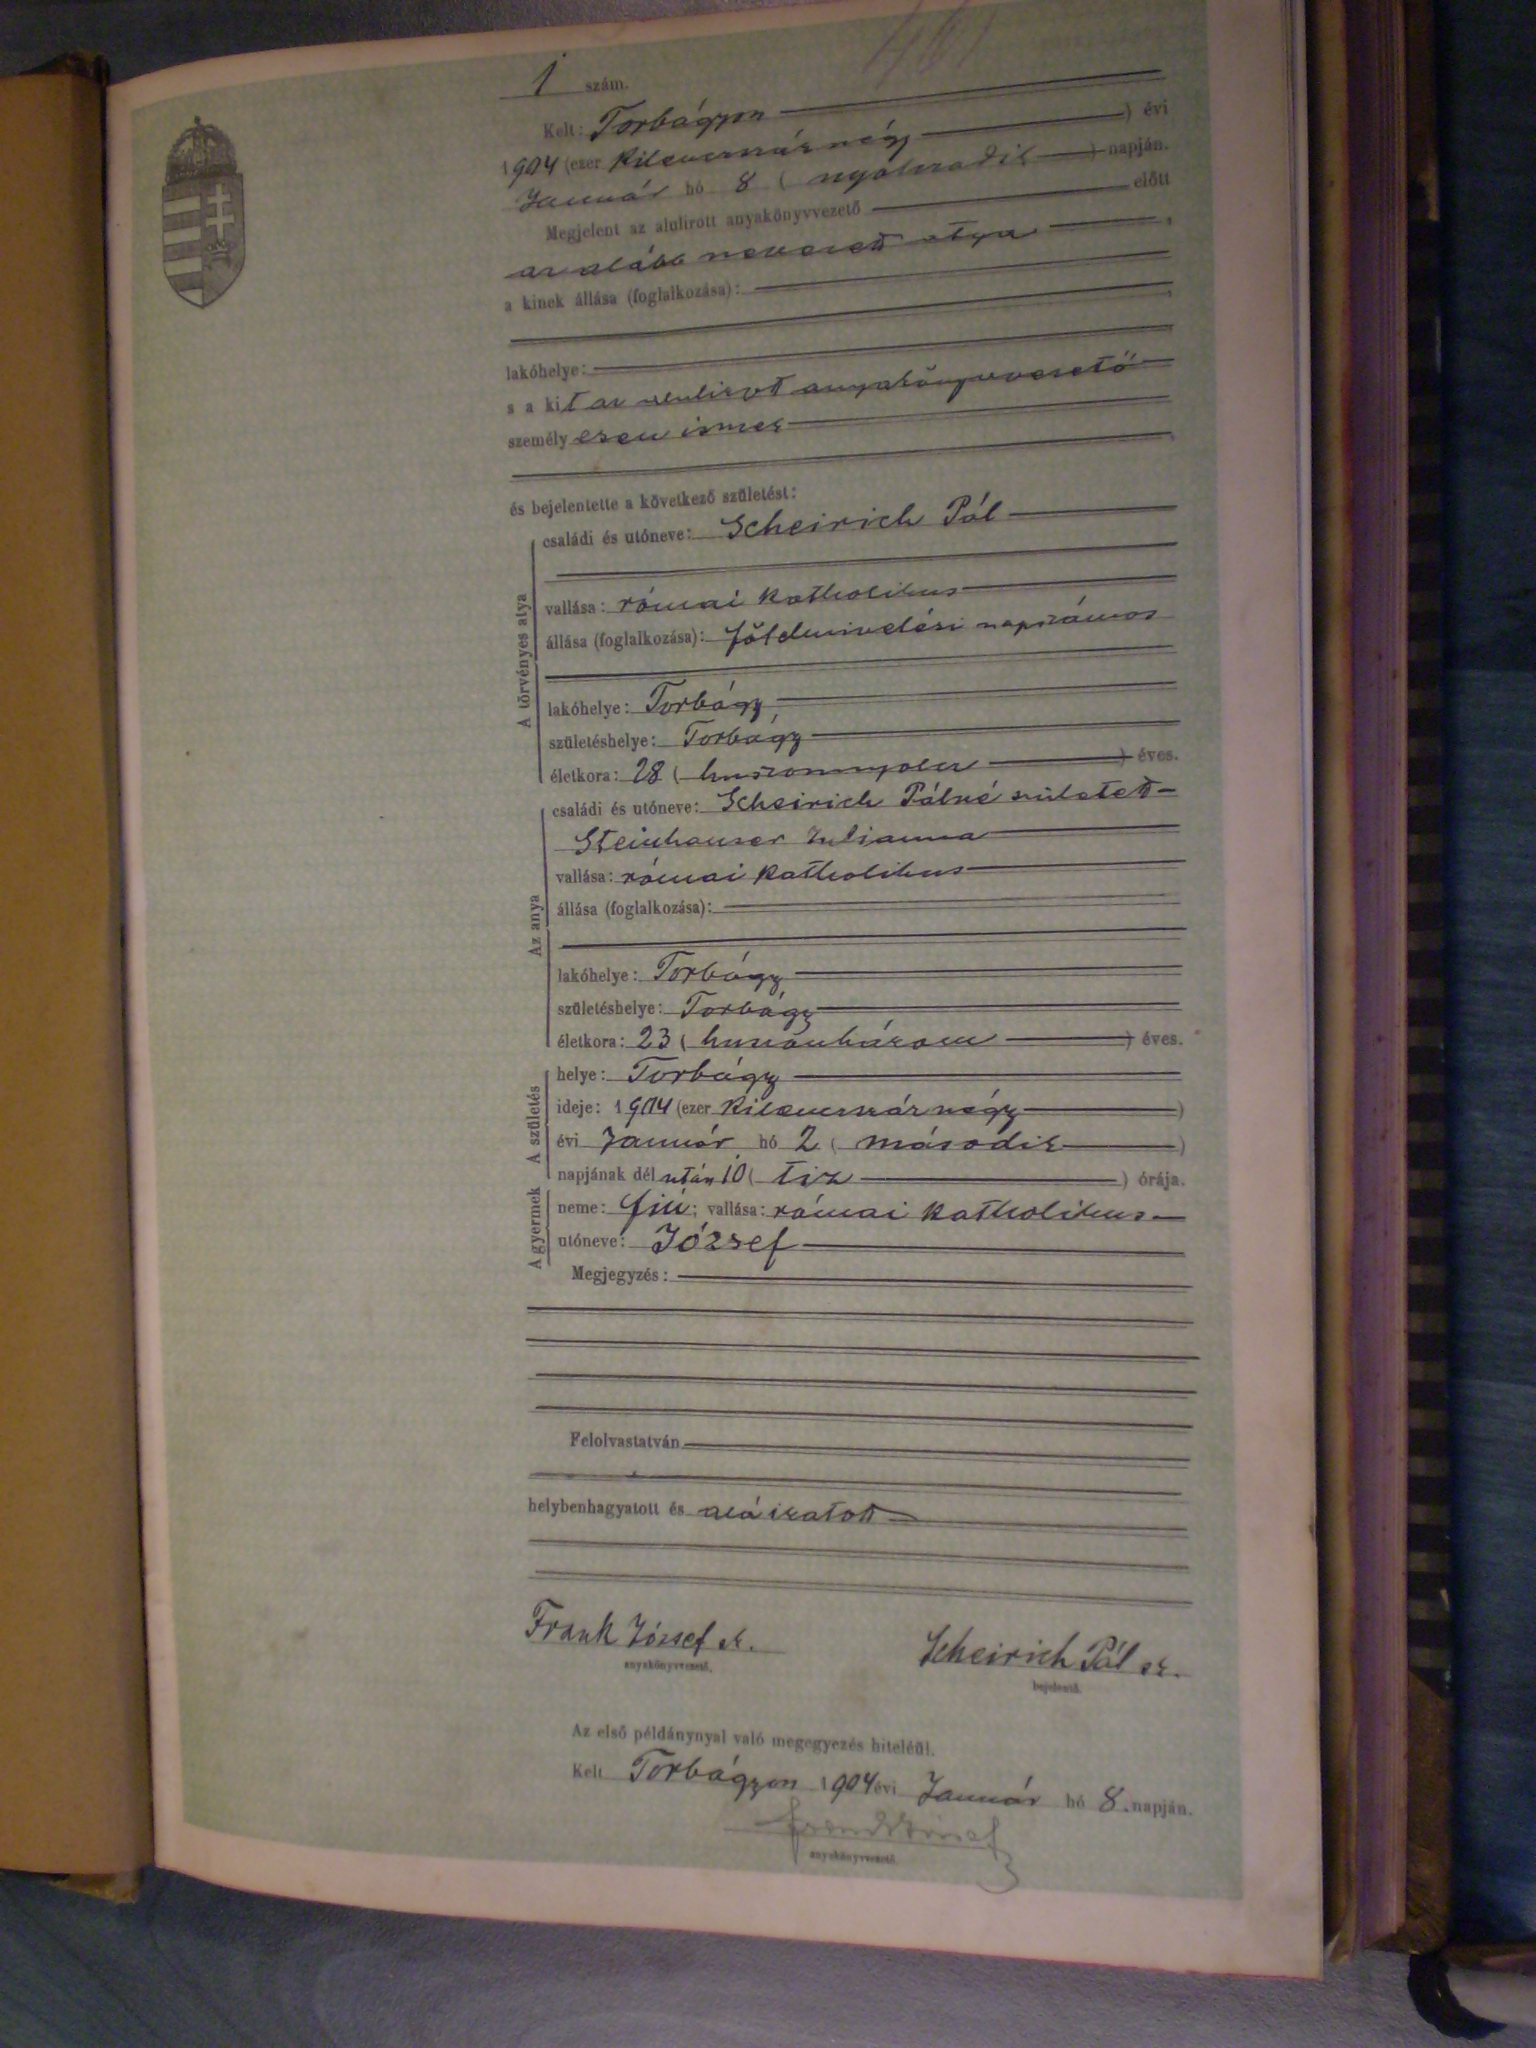 1 szám.
Kelt: Torbágyon
1904 (ezer kilencszáznégy ) évi
Január hó 8 ( nyolczadik ) napján.
Megjelent az alulirott anyakönyvvezető előtt
az alább nevezett atya ,
a kinek állása (foglalkozása):
lakóhelye:
s a kit az alulirott anyakönyvvezető
személyesen ismer
és bejelentette a következő születést:
A törvényes atya
családi és utóneve: Scheirich Pál
vallása: római katholikus
állása (foglalkozása): földmivelési napszámos
lakóhelye: Torbágy
születéshelye: Torbágy
életkora: 28 ( huszonnyolcz ) éves.
Az anya
családi és utóneve: Scheirich Pálné született
Steinhauser Julianna
vallása: római katholikus
állása (foglalkozása):
lakóhelye: Torbágy
születéshelye: Torbágy
életkora: 23 ( huszonhárom ) éves.
A születés
helye: Torbágy
ideje: 1904 (ezer kilencszáznégy )
évi Január hó 2 ( második )
napjának dél után 10 ( tiz ) órája.
A gyermek
neme: fiú; vallása: római katholikus
utóneve: József
Megjegyzés:
Felolvastatván
helybenhagyatott és aláiratott
Frank József sk. Scheirich Pál sk.
anyakönyvvezető. bejelentő.
Az első példánynyal való megegyezés hiteléül.
Kelt Torbágyon 1904 évi Január hó 8. napján.
Frank József
anyakönyvvezető.